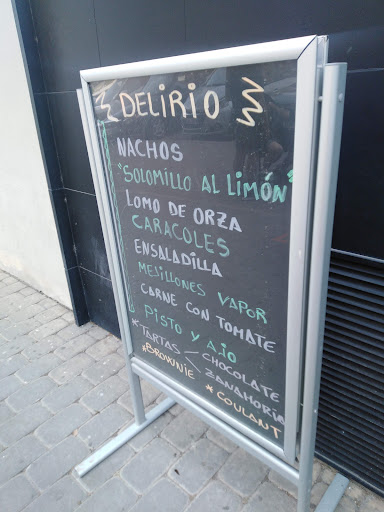 DELIRIO
NACHOS
"SOLOMILLO AL LIMÓN"
LOMO DE ORZA
CARACOLES
ENSALADILLA
MEJILLONES VAPOR
CARNE CON TOMATE
PISTO Y AJO
*TARTAS < CHOCOLATE
ZANAHORIA
*BROWNIE *COULANT